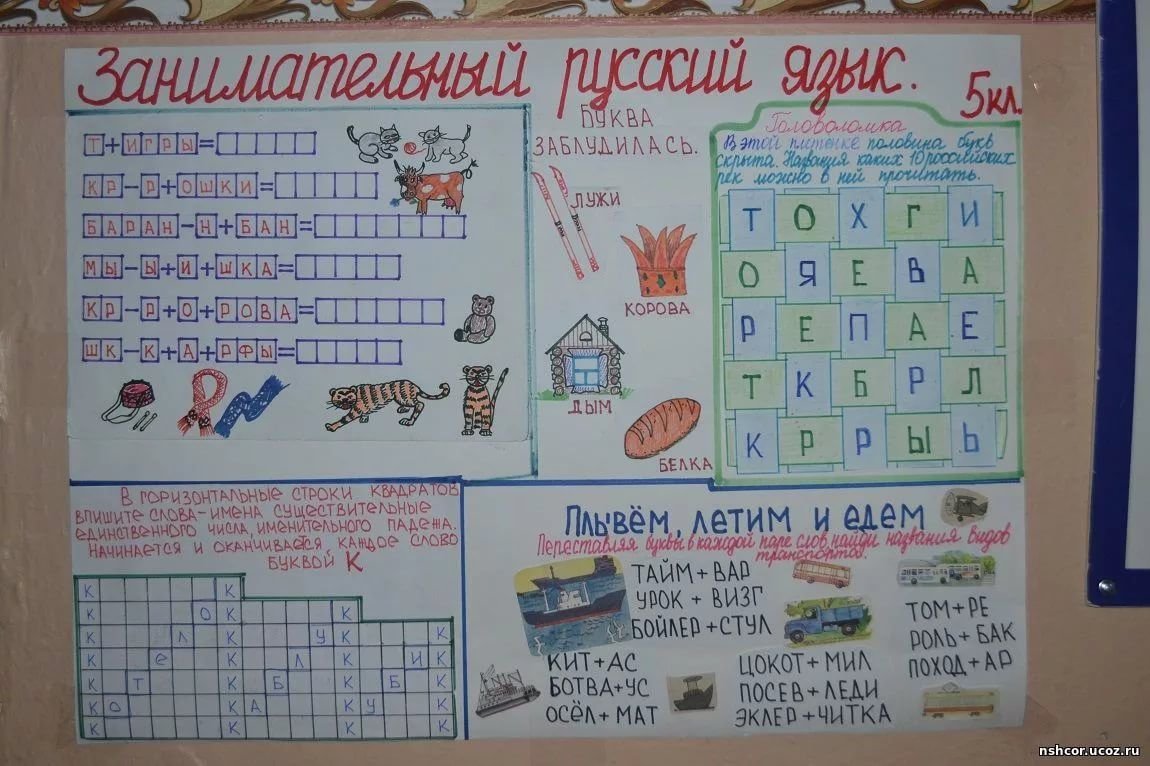 Занимательный русский язык.
5кл.
Т+ИГРЫ=
КР-Р+ОШКИ=
БАРАН-Н+БАН=
МЫ-Ы+И+ШКА=
КР-Р+О+РОВА=
ШК-К+А+РФЫ=
БУКВА
ЗАБЛУДИЛАСЬ.
ЛУЖИ
КОРОВА
ДЫМ
БЕЛКА
Головоломка
В этой плетёнке половина букв
скрыта. Названия каких 10 российских
рек можно в ней прочитать.
Т О Х Г И
О Я Е В А
Р Е П А Е
Т К Б Р Л
К Р Р Ы Ь
В ГОРИЗОНТАЛЬНЫЕ СТРОКИ КВАДРАТОВ
ВПИШИТЕ СЛОВА-ИМЕНА СУЩЕСТВИТЕЛЬНЫЕ
ЕДИНСТВЕННОГО ЧИСЛА, ИМЕНИТЕЛЬНОГО ПАДЕЖА.
НАЧИНАЕТСЯ И ОКАНЧИВАЕТСЯ КАЖДОЕ СЛОВО
БУКВОЙ К
К К
К О К
К Л К У К К
К е К Л К И К
К Т К Б К Б К
К О К А К У К
К К К К
Плывём, летим и едем
Переставляя буквы в каждой паре слов, найди названия видов
транспорта.
ТАЙМ+ВАР
УРОК + ВИЗГ
БОЙЛЕР+СТУЛ
КИТ+АС
БОТВА+УС
ОСЁЛ+МАТ
ЦОКОТ+МИЛ
ПОСЕВ+ЛЕДИ
ЭКЛЕР+ЧИТКА
ТОМ+РЕ
РОЛЬ+БАК
ПОХОД+АР
nshcor.ucoz.ru